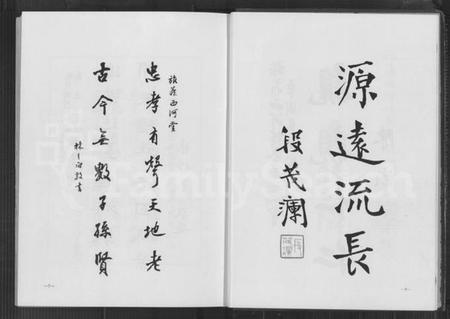 源遠流長
段茂瀾
旅菲西河堂
忠孝有聲天地老
古今無數子孫賢
敬書
FamilySearch